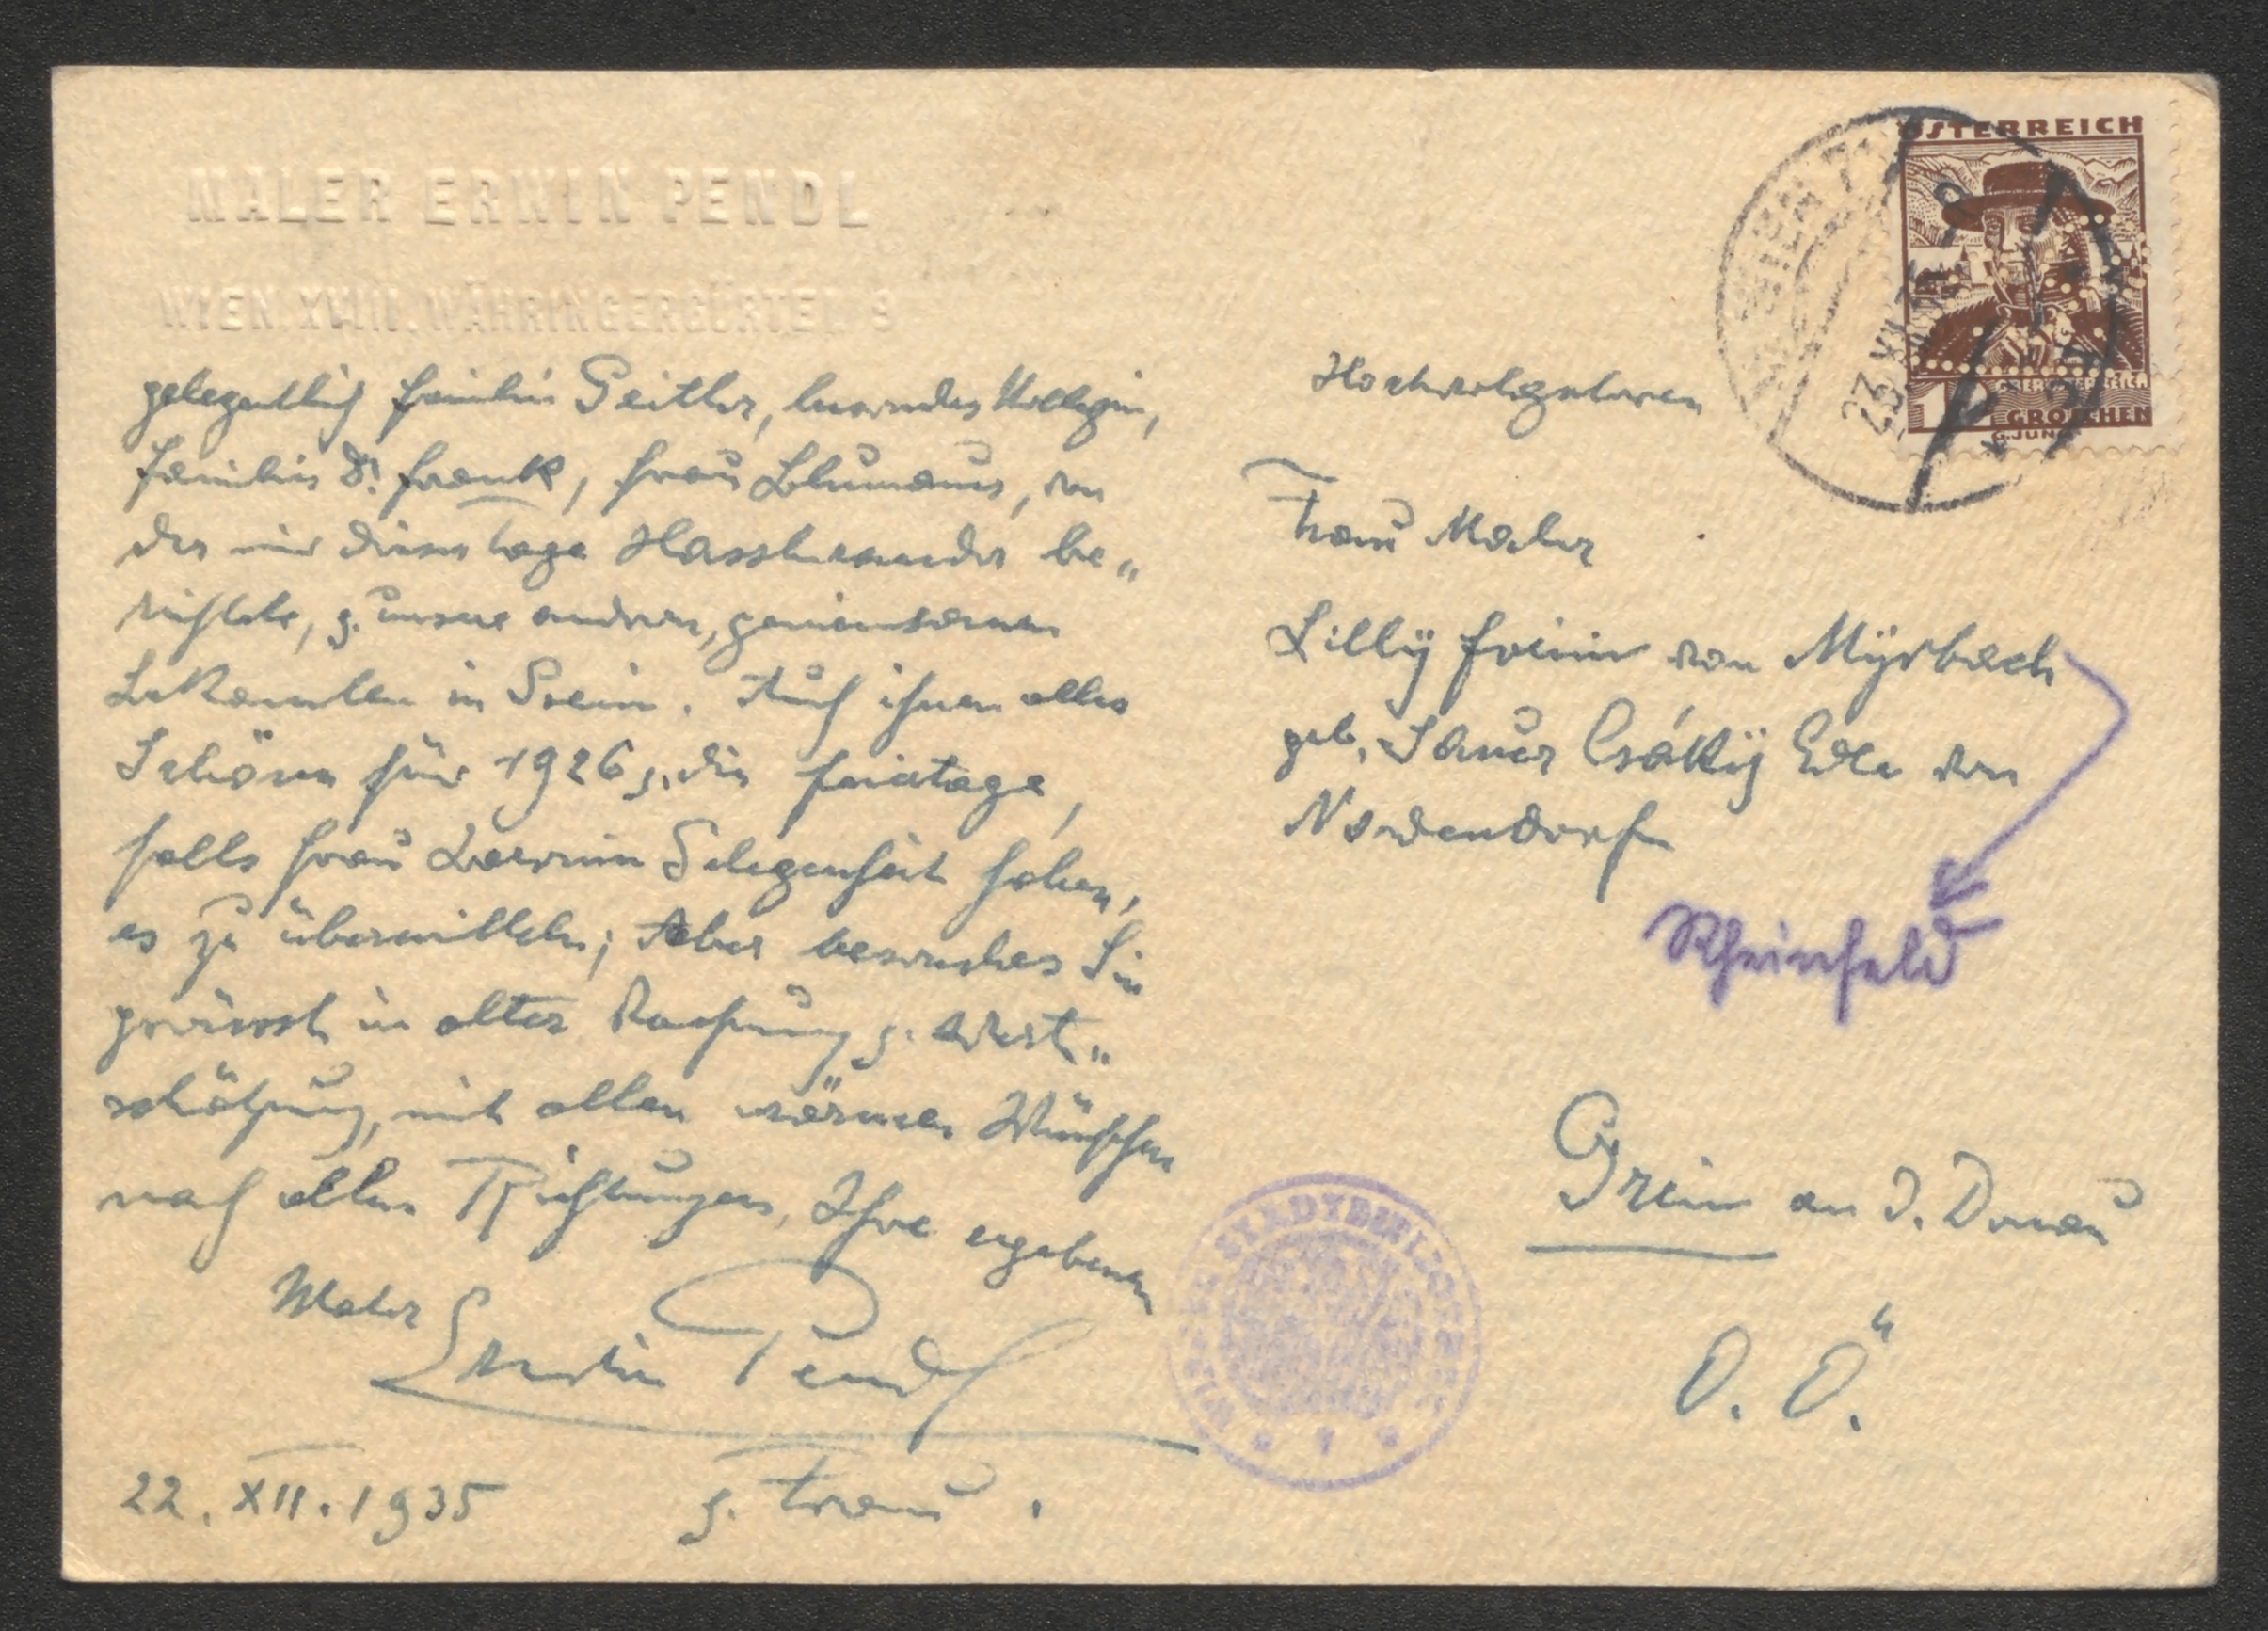 MALER ERWIN PENDL
WIEN XVIII. WÄHRINGERGÜRTEL 9
gelegentlich Familie Geitler,
Familie Dr. Frank, Frau von
der mir dieser Tage be„
richtete, u. unsere anderen, gemeinsamen
Bekannten in Grein. Auch ihnen alles
Schöne für 1926 u. die Feiertage,
falls Frau Baronin Gelegenheit haben,
es zu übermitteln; Aber Sie
in alter u. Wert„
schätzung, mit allen warmen Wünschen
nach allen Richtungen, Ihre ergebenen
Maler Erwin Pendl
22. XII. 1935 u. Frau.
ÖSTERREICH
OBERÖSTERREICH
GROSCHEN
WIEN
23.XII
Hochwohlgeboren
Frau Maler
Lilly Freiin von Myrbach
geb. Sauer Csáky Edle von
Nordendorf
Rheinfeld
Grein an d. Donau
O. Ö.